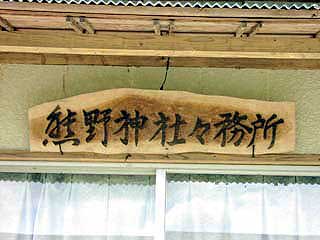 熊野神社々務所